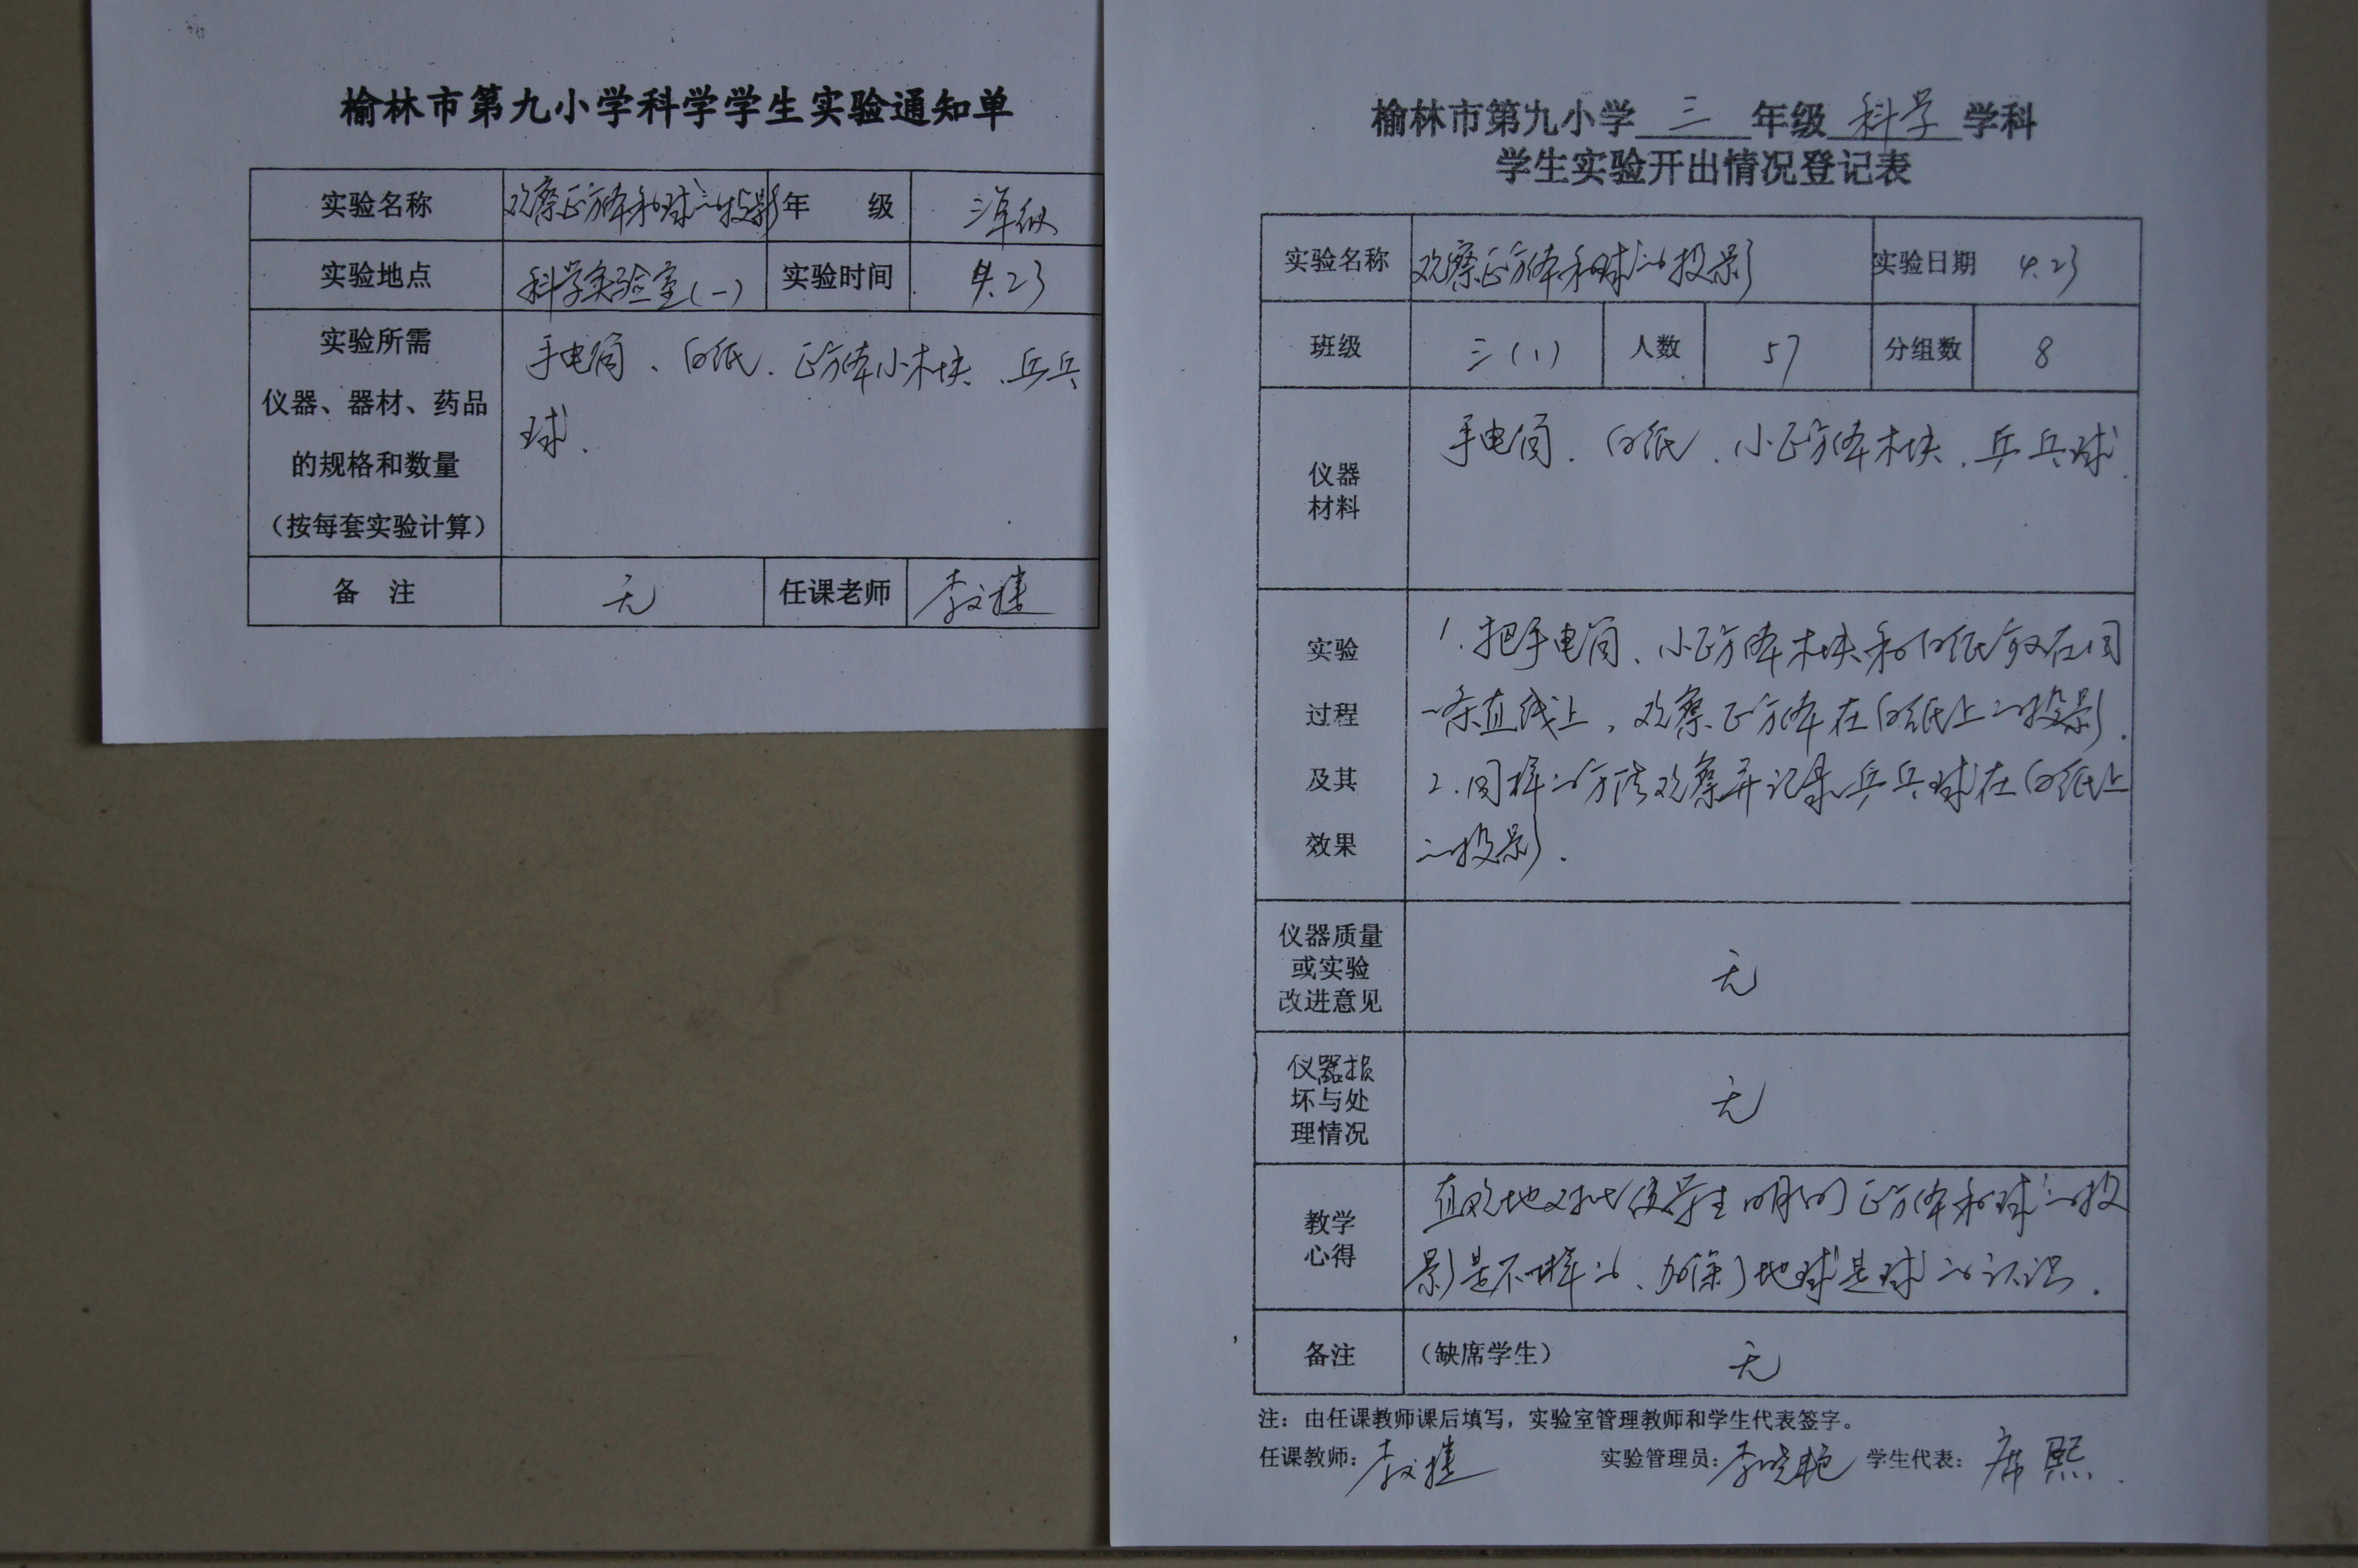 榆林市第九小学科学学生实验通知单
实验名称 观察正方体和球的投影 年 级 三年级
实验地点 科学实验室(一) 实验时间 4.23
实验所需
仪器、器材、药品
的规格和数量
（按每套实验计算）
手电筒、白纸、正方体小木块、乒乓
球.
备 注 无 任课老师 李文捷
榆林市第九小学 三 年级 科学 学科
学生实验开出情况登记表
实验名称 观察正方体和球的投影 实验日期 4.23
班级 三(1) 人数 57 分组数 8
仪器
材料
手电筒、白纸、小正方体木块、乒乓球.
实验
过程
及其
效果
1.把手电筒、小正方体木块和白纸放在同
一条直线上,观察正方体在白纸上的投影.
2.同样的方法观察并记录乒乓球在白纸上
的投影.
仪器质量
或实验
改进意见
无
仪器损
坏与处
理情况
无
教学
心得
直观地对比使学生明白了正方体和球的投
影是不一样的、加深了地球是球的认识.
备注 （缺席学生） 无
注：由任课教师课后填写，实验室管理教师和学生代表签字。
任课教师：李文捷 实验管理员：李晓艳 学生代表：席熙.